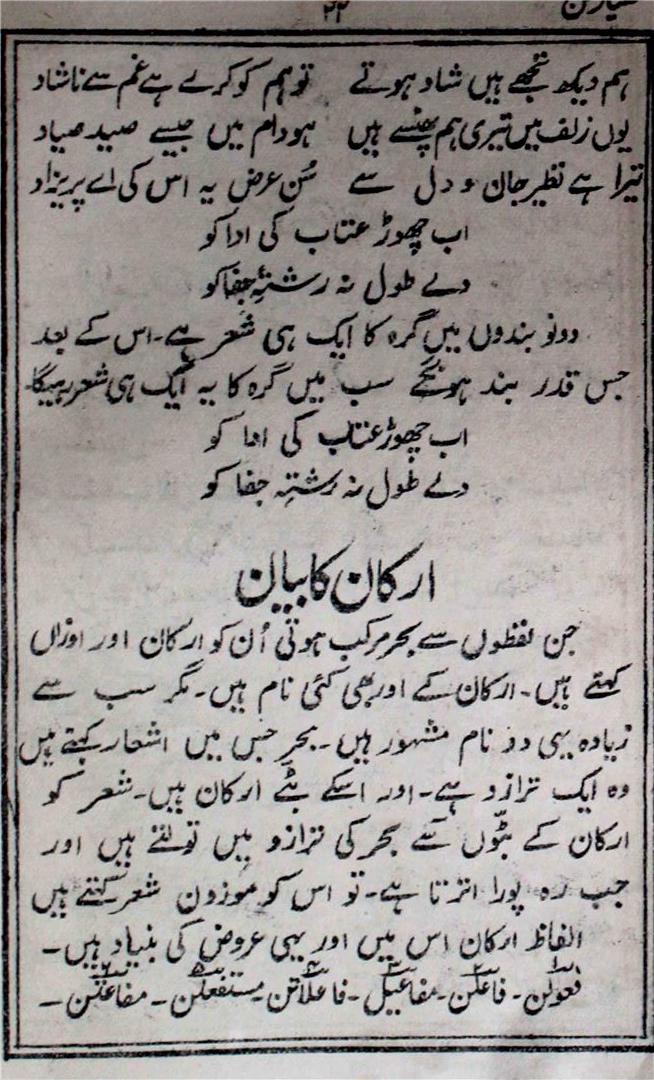 ۲۲
ہم دیکھ تجھے ہیں شاد ہوتے تو ہم کو کرے ہے غم سے ناشاد
یوں زلف میں تیری ہم پھنسے ہیں ہو دام میں جیسے صید صیاد
تیرا ہے نظیر جان و دل سے سُن عرض یہ اس کی اے پریزاد
اب چھوڑ عتاب کی ادا کو
دے طول نہ رشتۂ جفا کو
دونو بندوں میں گرہ کا ایک ہی شعر ہے۔ اس کے بعد
جس قدر بند ہونگے سب میں گرہ کا یہ ایک ہی شعر رہیگا۔
اب چھوڑ عتاب کی ادا کو
دے طول نہ رشتہ جفا کو
ارکان کا بیان
جن لفظوں سے بحر مرکب ہوتی اُن کو ارکان اور اوزاں
کہتے ہیں۔ ارکان کے اور بھی کئی نام ہیں۔ مگر سب سے
زیادہ یہی دو نام مشہور ہیں۔ بحر جس میں اشعار کہتے ہیں
وہ ایک ترازو ہے۔ اور اسکے بٹے ارکان ہیں۔ شعر کو
ارکان کے بٹّوں سے بحر کی ترازو میں تولتے ہیں اور
جب وہ پورا اترتا ہے۔ تو اس کو موزون شعر کہتے ہیں
الفاظ ارکان اس میں اور یہی عروض کی بنیاد ہیں۔
فعولن۔ فاعلن۔ مفاعیل۔ فاعلاتن۔ مستفعلن۔ مفاعلتن۔